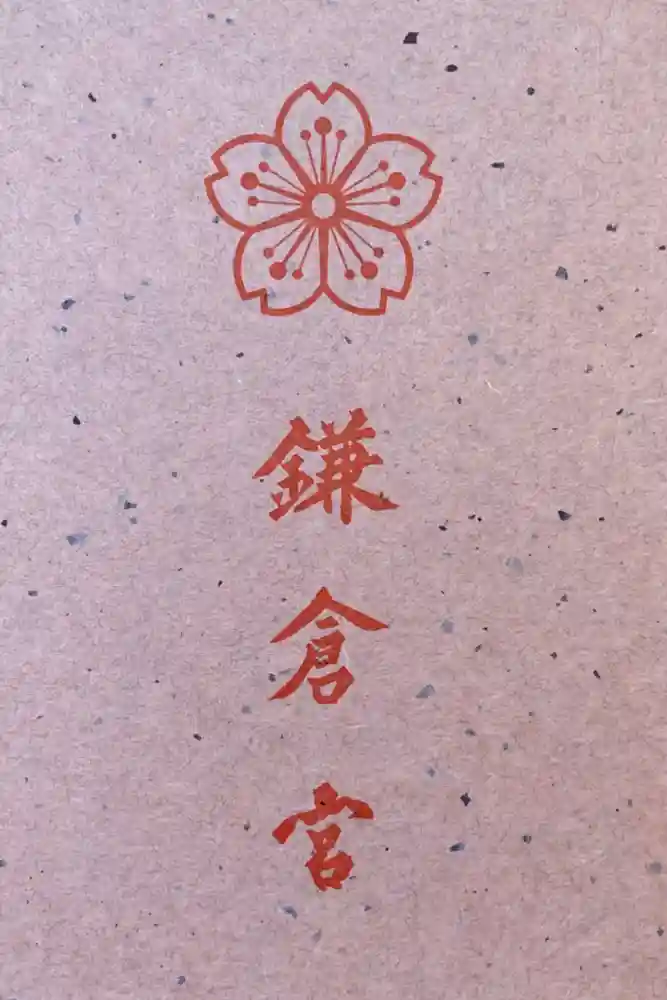 鎌倉宮